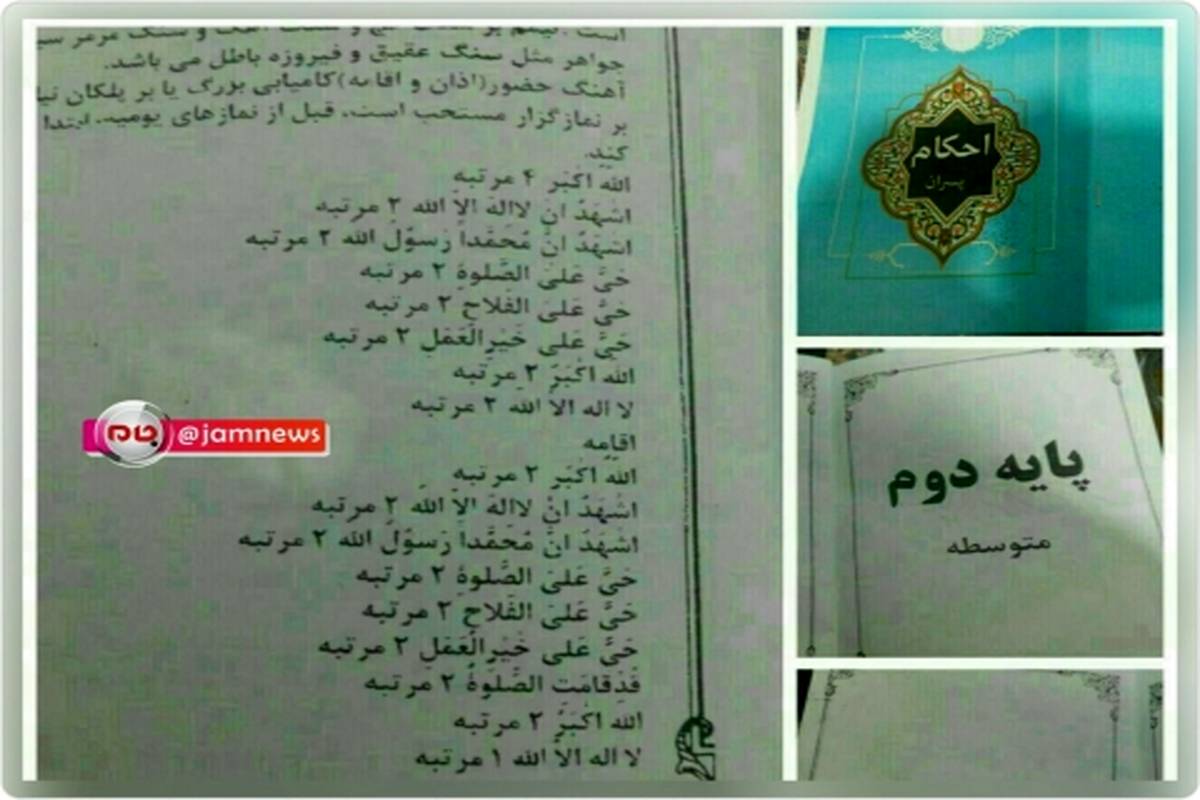 جواهر مثل سنگ عقیق و فیروزه باطل می باشد.
آهنگ حضور(اذان و اقامه)کامیابی بزرگ یا بر پلکان
بر نمازگزار مستحب است، قبل از نمازهای یومیه، ابتدا
کند.
الله اَکْبَر ۴ مرتبه
اَشْهَدُ اَنْ لااِلهَ اِلاَّ الله ۲ مرتبه
اَشْهَدُ اَنَّ مُحَمَّداً رَسوُلُ الله ۲ مرتبه
حَیَّ عَلَی الصَّلوةِ ۲ مرتبه
حَیَّ عَلَی الفَلاحِ ۲ مرتبه
حَیَّ عَلی خَیْرِالْعَمَلِ ۲ مرتبه
الله اَکْبَرُ ۲ مرتبه
لا اله الاّ الله ۲ مرتبه
اقامه
الله اَکْبَر ۲ مرتبه
اَشْهَدُ اَنْ لااِلهَ اِلاَّ الله ۲ مرتبه
اَشْهَدُ اَنَّ مُحَمَّداً رَسوُلُ الله ۲ مرتبه
حَیَّ عَلَی الصَّلوةِ ۲ مرتبه
حَیَّ عَلَی الفَلاحِ ۲ مرتبه
حَیَّ عَلی خَیْرِالْعَمَلِ ۲ مرتبه
قَدْقامَتِ الصَّلوةُ ۲ مرتبه
الله اَکْبَرُ ۲ مرتبه
لا اله الاّ الله ۱ مرتبه
جام @jamnews
احکام
پسران
پایه دوم
متوسطه